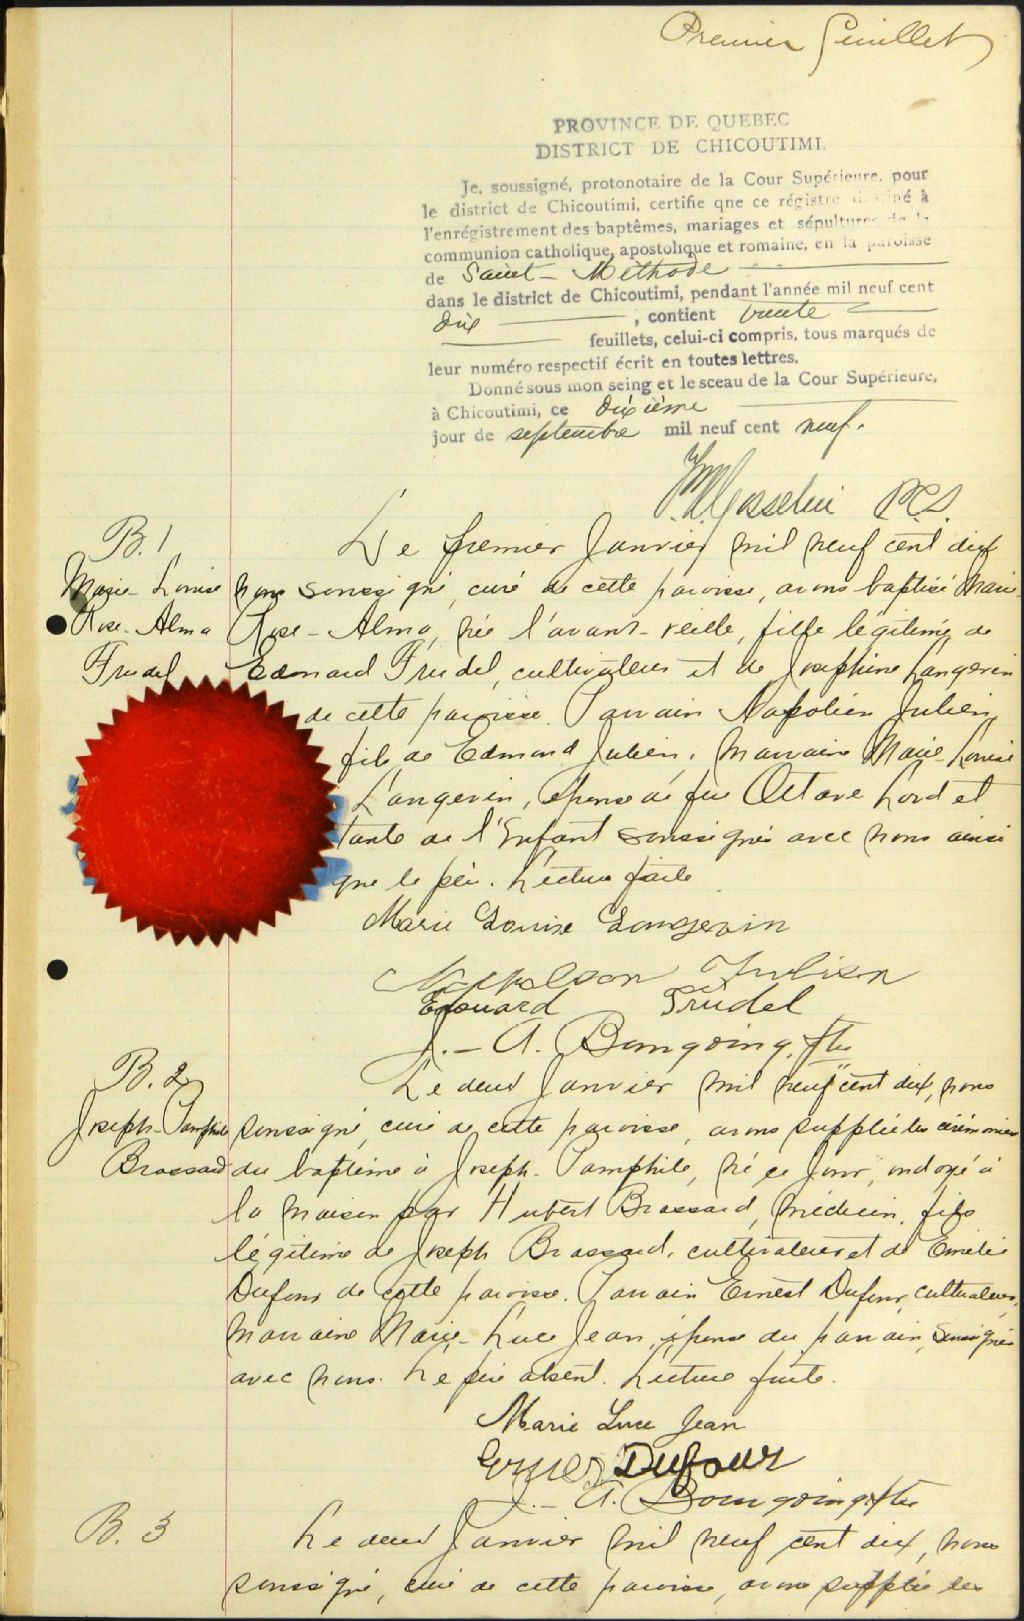 Premier feuillet
PROVINCE DE QUEBEC
DISTRICT DE CHICOUTIMI.
Je, soussigné, protonotaire de la Cour Supérieure, pour
le district de Chicoutimi, certifie qne ce régistre destiné à
l'enrégistrement des baptêmes, mariages et sépultures de la
communion catholique, apostolique et romaine, en la paroisse
de Saint-Méthode
dans le district de Chicoutimi, pendant l'année mil neuf cent
dix, contient trente
feuillets, celui-ci compris, tous marqués de
leur numéro respectif écrit en toutes lettres.
Donné sous mon seing et le sceau de la Cour Supérieure,
à Chicoutimi, ce dixième
jour de septembre mil neuf cent neuf.
Gosselin P.C.S.
B. 1
Marie-Louise
Rose-Alma
Trudel
Le premier Janvier mil neuf cent dix
nous soussigné, curé de cette paroisse, avons baptisé Marie-
Rose-Alma, née l'avant-veille, fille légitime de
Edouard Trudel, cultivateur et de Joséphine Langevin
de cette paroisse. Parrain Napoléon Julien,
fils de Edmond Julien, marraine Marie-Louise
Langevin, épouse de feu Octave Lord et
tante de l'enfant soussignés avec nous ainsi
que le père. Lecture faite
Marie Louise Langevin
Napoleon Julien
Edouard Trudel
J.-A. Bourgoing, Ptre
B. 2
Joseph-Pamphile
Brassard
Le deux Janvier mil neuf cent dix, nous
soussigné, curé de cette paroisse, avons suppléé les cérémonies
du baptême à Joseph-Pamphile, né ce jour, ondoyé à
la maison par Hubert Brassard, médecin, fils
légitime de Joseph Brassard, cultivateur et de Emélie
Dufour de cette paroisse. Parrain Ernest Dufour, cultivateur,
marraine Marie-Luce Jean, épouse du parrain, soussignés
avec nous. Le père absent. Lecture faite.
Marie Luce Jean
Ernest Dufour
J.-A. Bourgoing, Ptre
B. 3
Le deux Janvier mil neuf cent dix, nous
soussigné, curé de cette paroisse, avons suppléé les